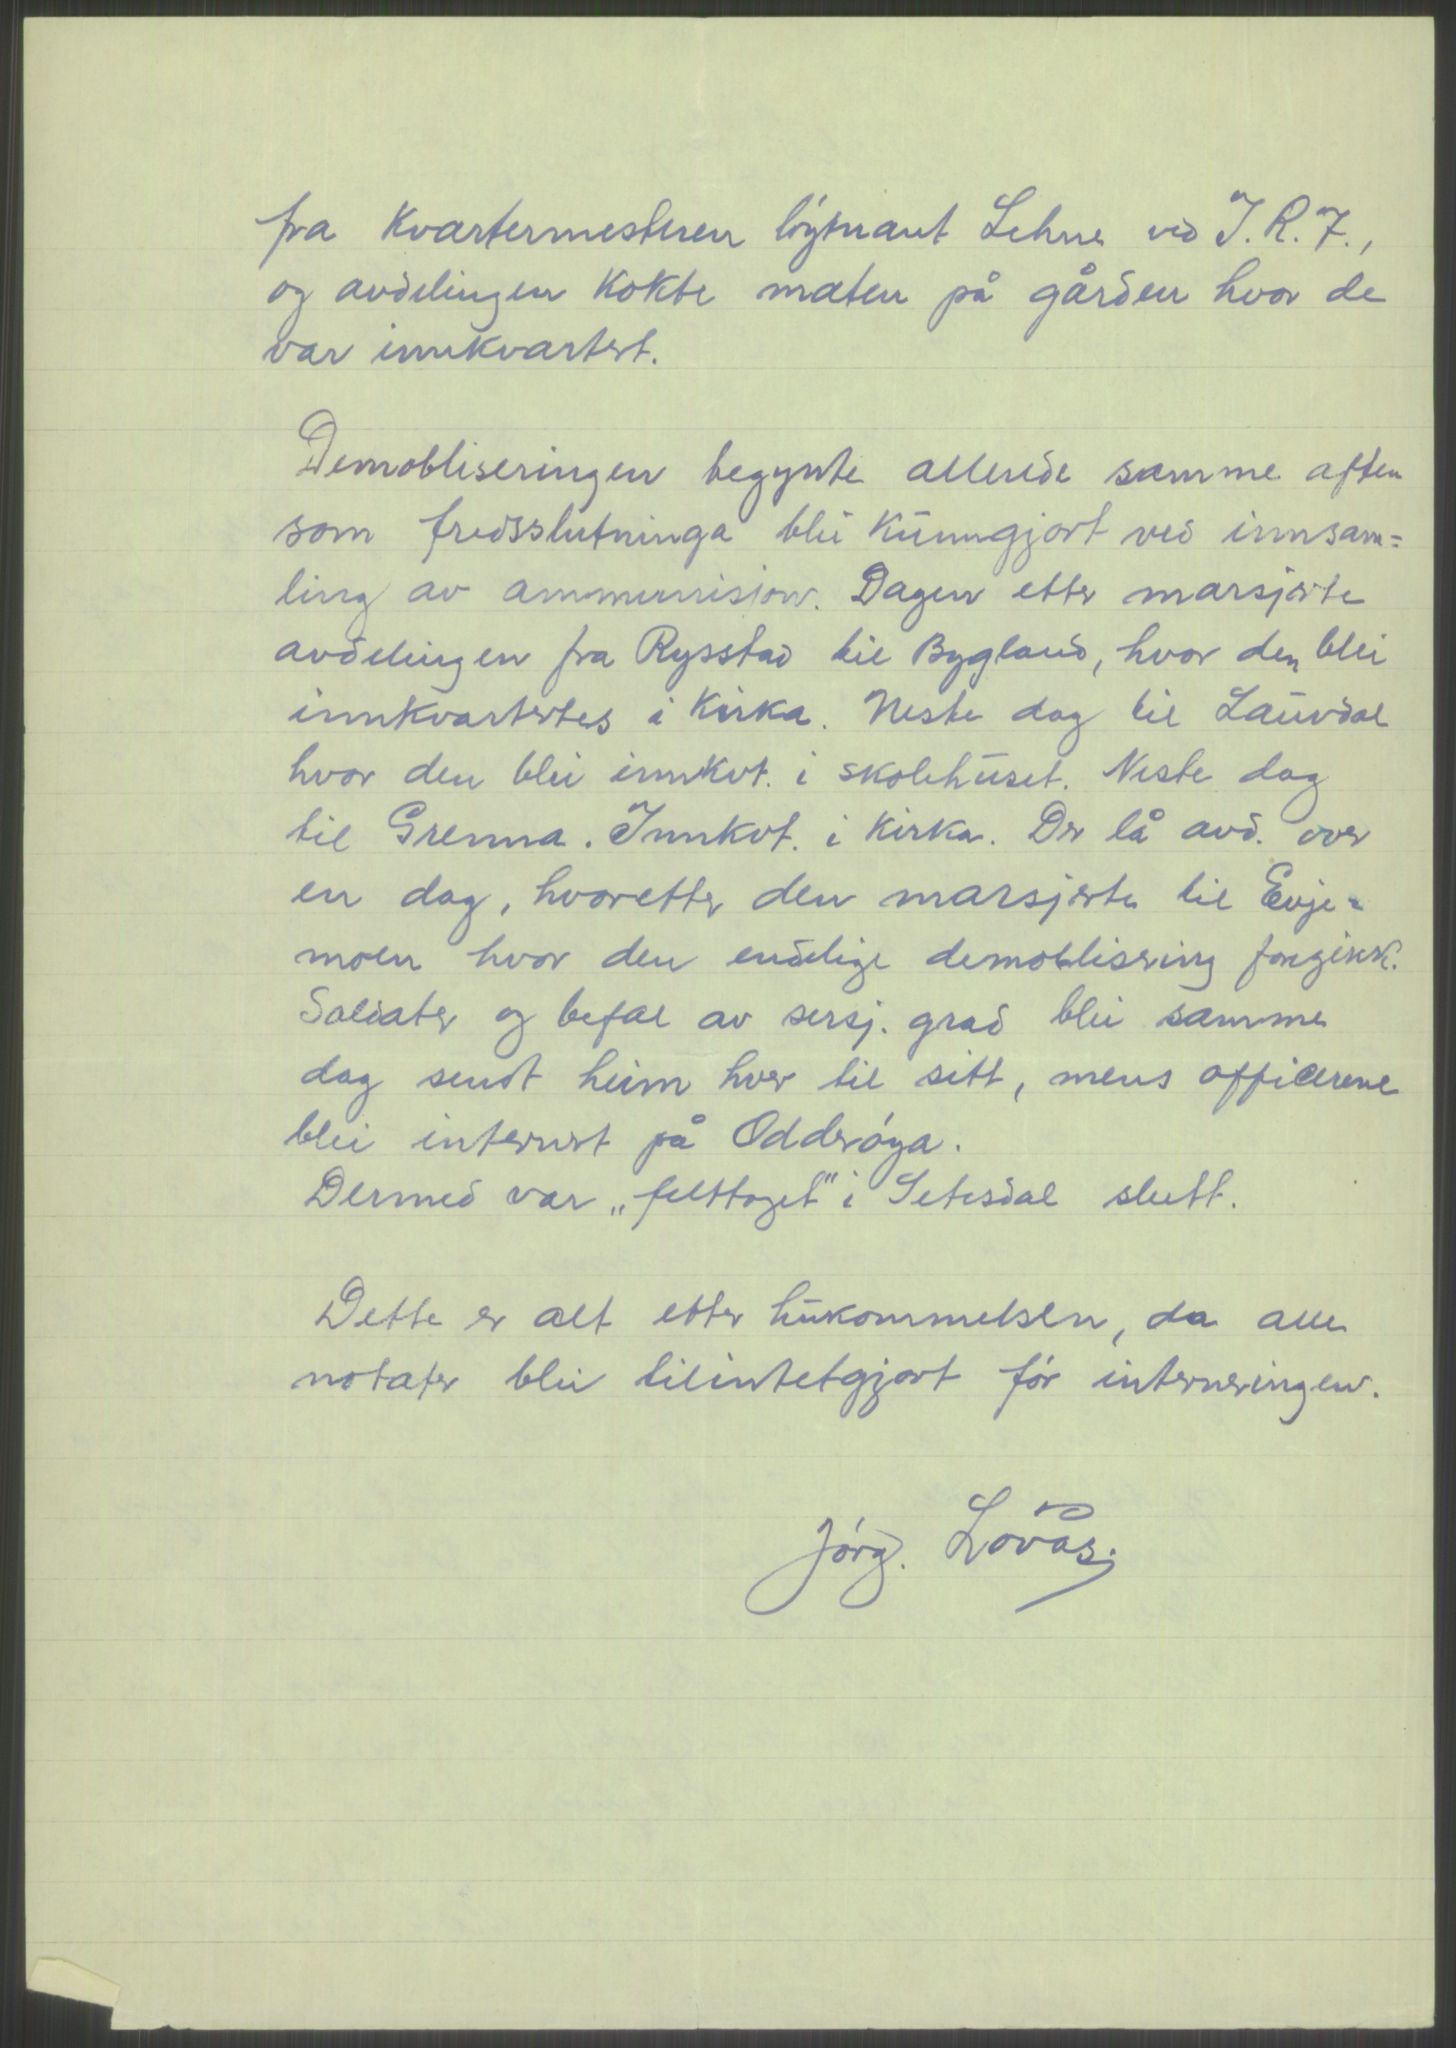 fra kvartermesteren löytnant Lehne ved I.R.7.,
og avdelingen kokte maten på gården hvor de
var innkvartert.
Demobliseringen begynte allerede samme aften
som fredsslutninga blei kunngjort ved innsam=
ling av ammunisjon. Dagen etter marsjerte
avdelingen fra Rysstad til Bygland, hvor den blei
innkvartertes i kirka. Neste dag til Lauvdal
hvor den blei innkvt. i skolehuset. Neste dag
til Grenna. Innkvt. i kirka. Der lå avd. over
en dag, hvoretter den marsjerte til Evje=
moen hvor den endelige demoblisering foregikk.
Soldater og befal av sersj. grad blei samme
dag sendt heim hver til sitt, mens officerene
blei internert på Odderöya.
Dermed var „felttoget" i Setesdal slutt.
Dette er alt etter hukommelsen, da alle
notater blei tilintetgjort för interneringen.
Jörg. Lövås.